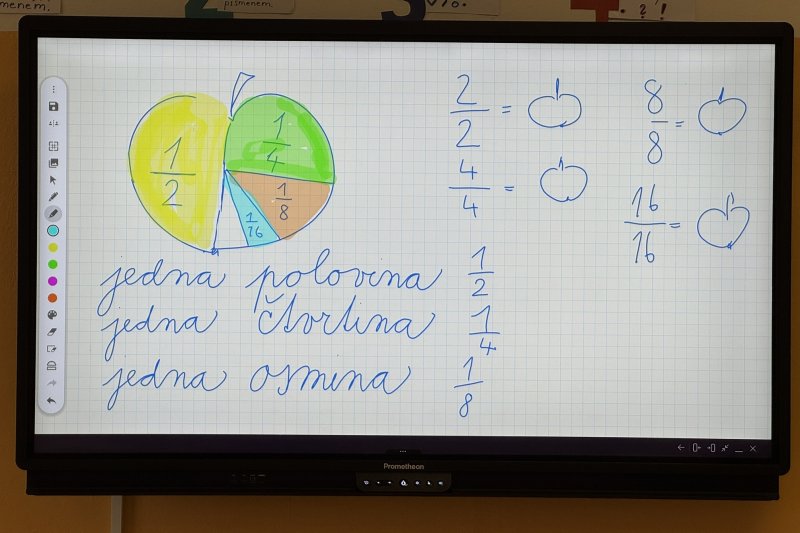 ismenem.
písmenem.
3
1/2
1/4
1/8
1/16
2/2 =
4/4 =
8/8 =
16/16 =
jedna polovina 1/2
jedna čtvrtina 1/4
jedna osmina 1/8
Promethean